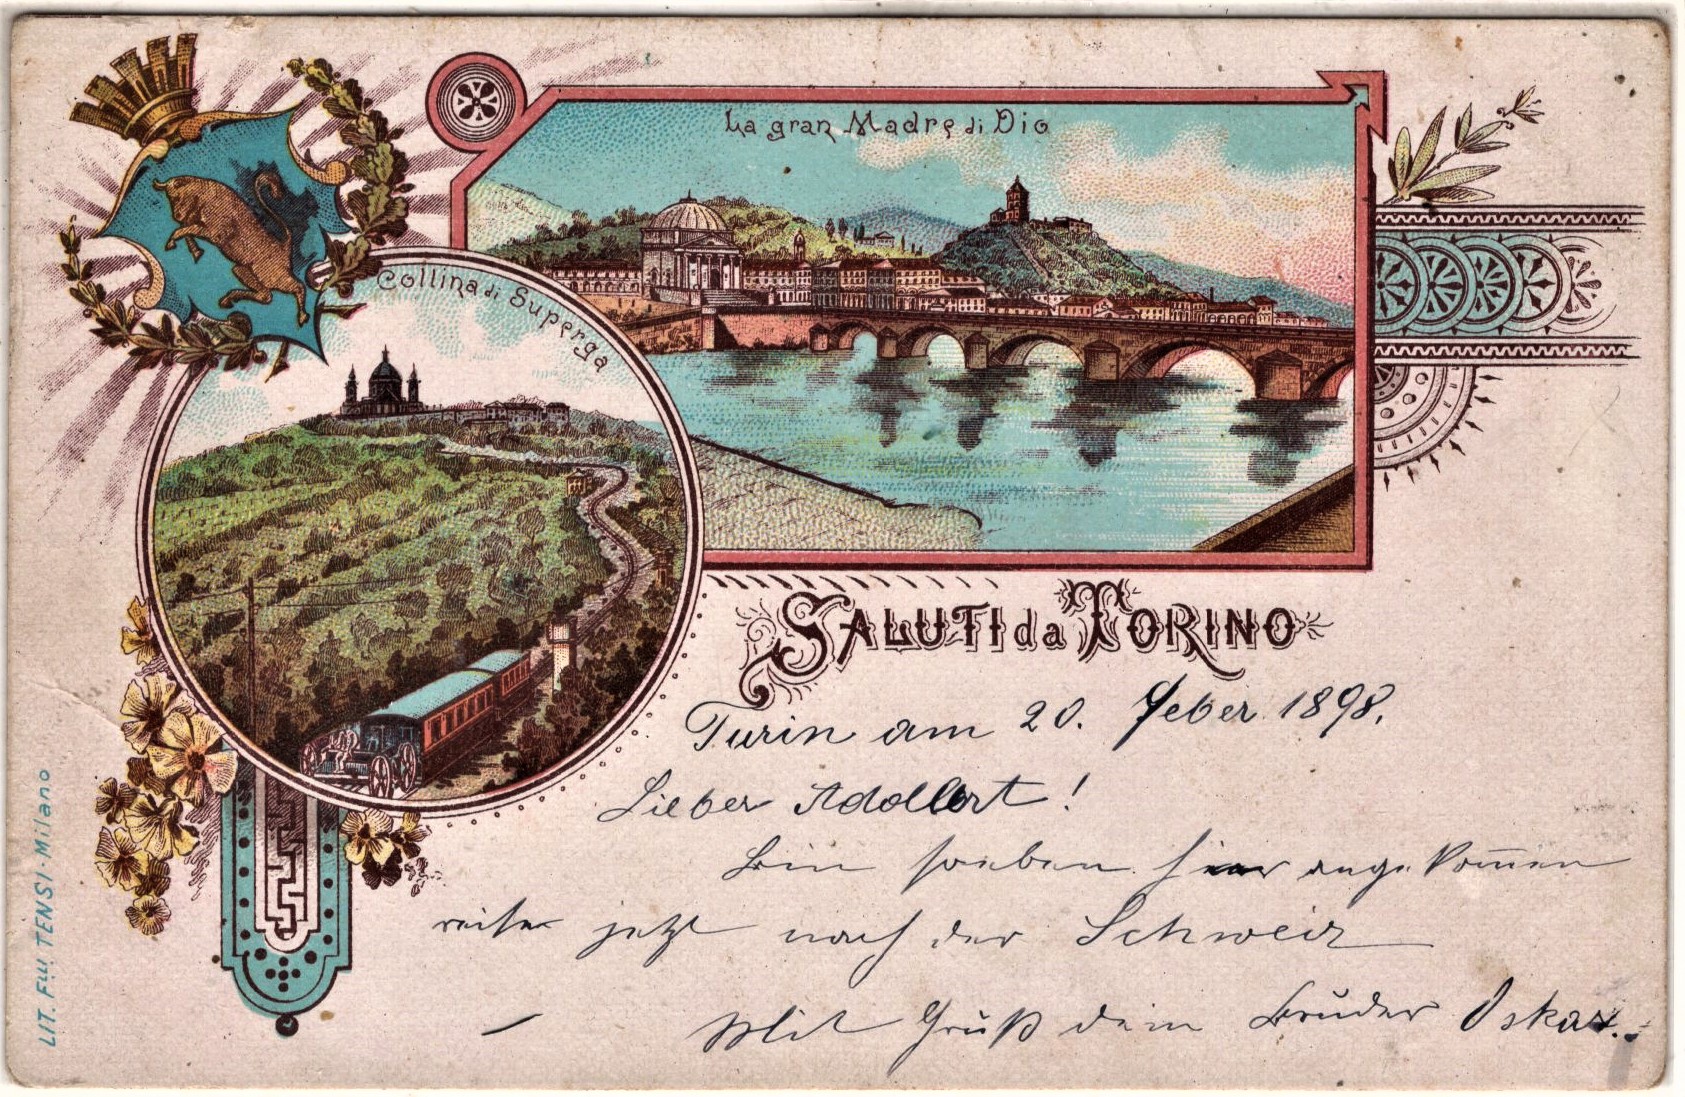 La gran Madre di Dio
Collina di Superga
SALUTI da TORINO
Turin am 20. Feber 1898.
Lieber Adolbert!
Bin soeben hier angekom̄en
reise jetzt nach der Schweiz
Mit Gruß dein Bruder Oskar.
LIT. Flli TENSI · Milano